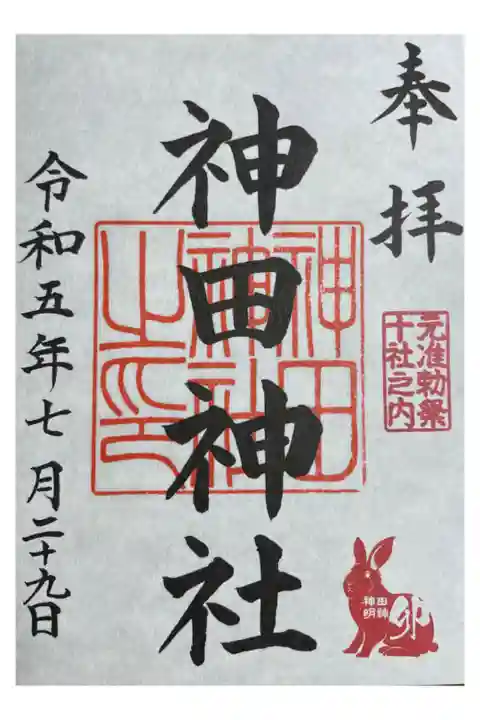 奉拝
元准勅祭
十社之内
神田神社
神田
神社
之印
令和五年七月二十九日
神田
明神
卯